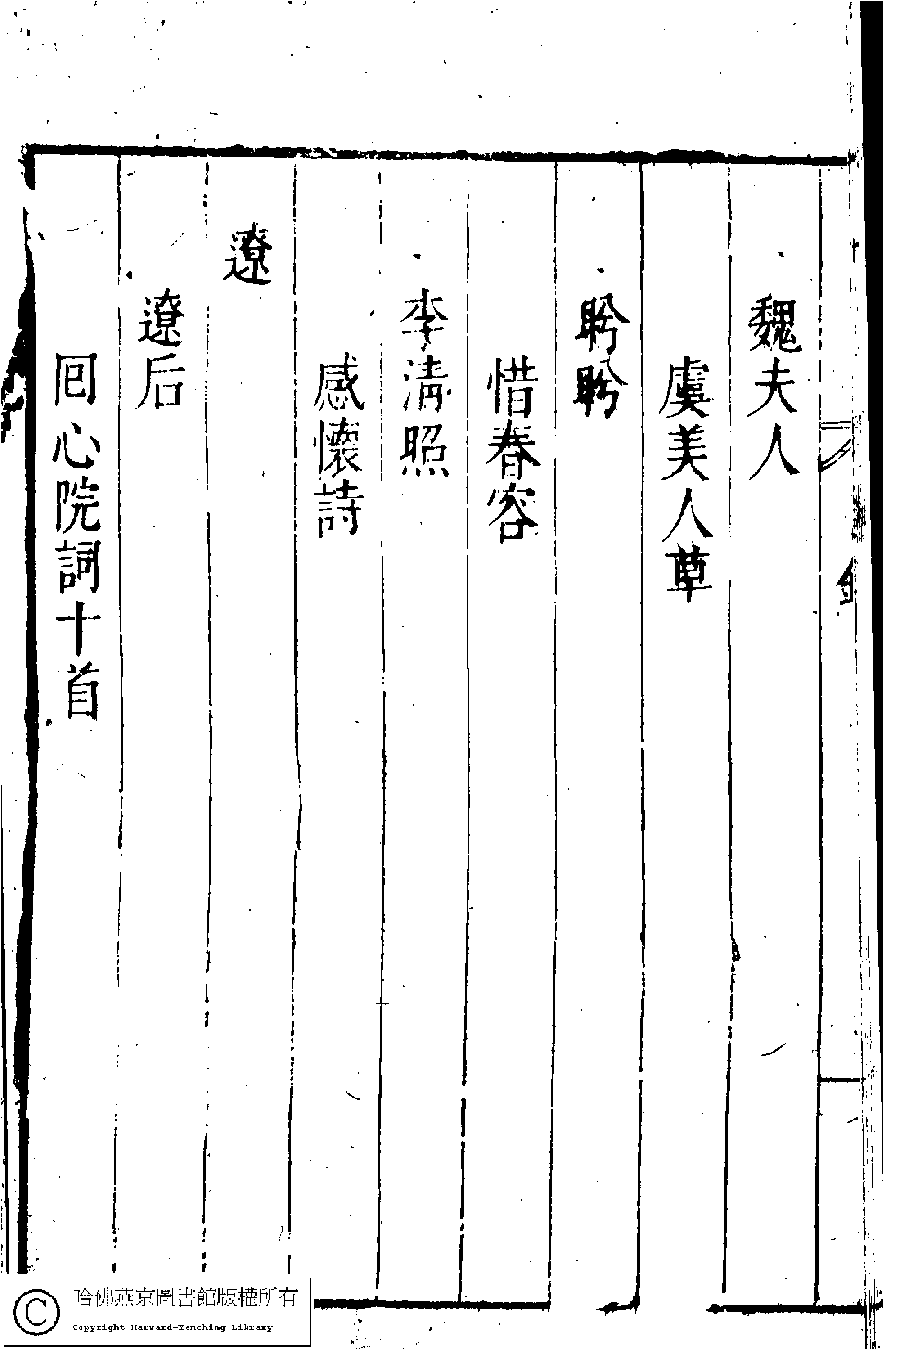 魏夫人
虞美人草
盻盻
惜春容
李清照
感懷詩
遼
遼后
囘心院詞十首
哈佛燕京圖書館版權所有
Copyright Harvard-Yenching Library